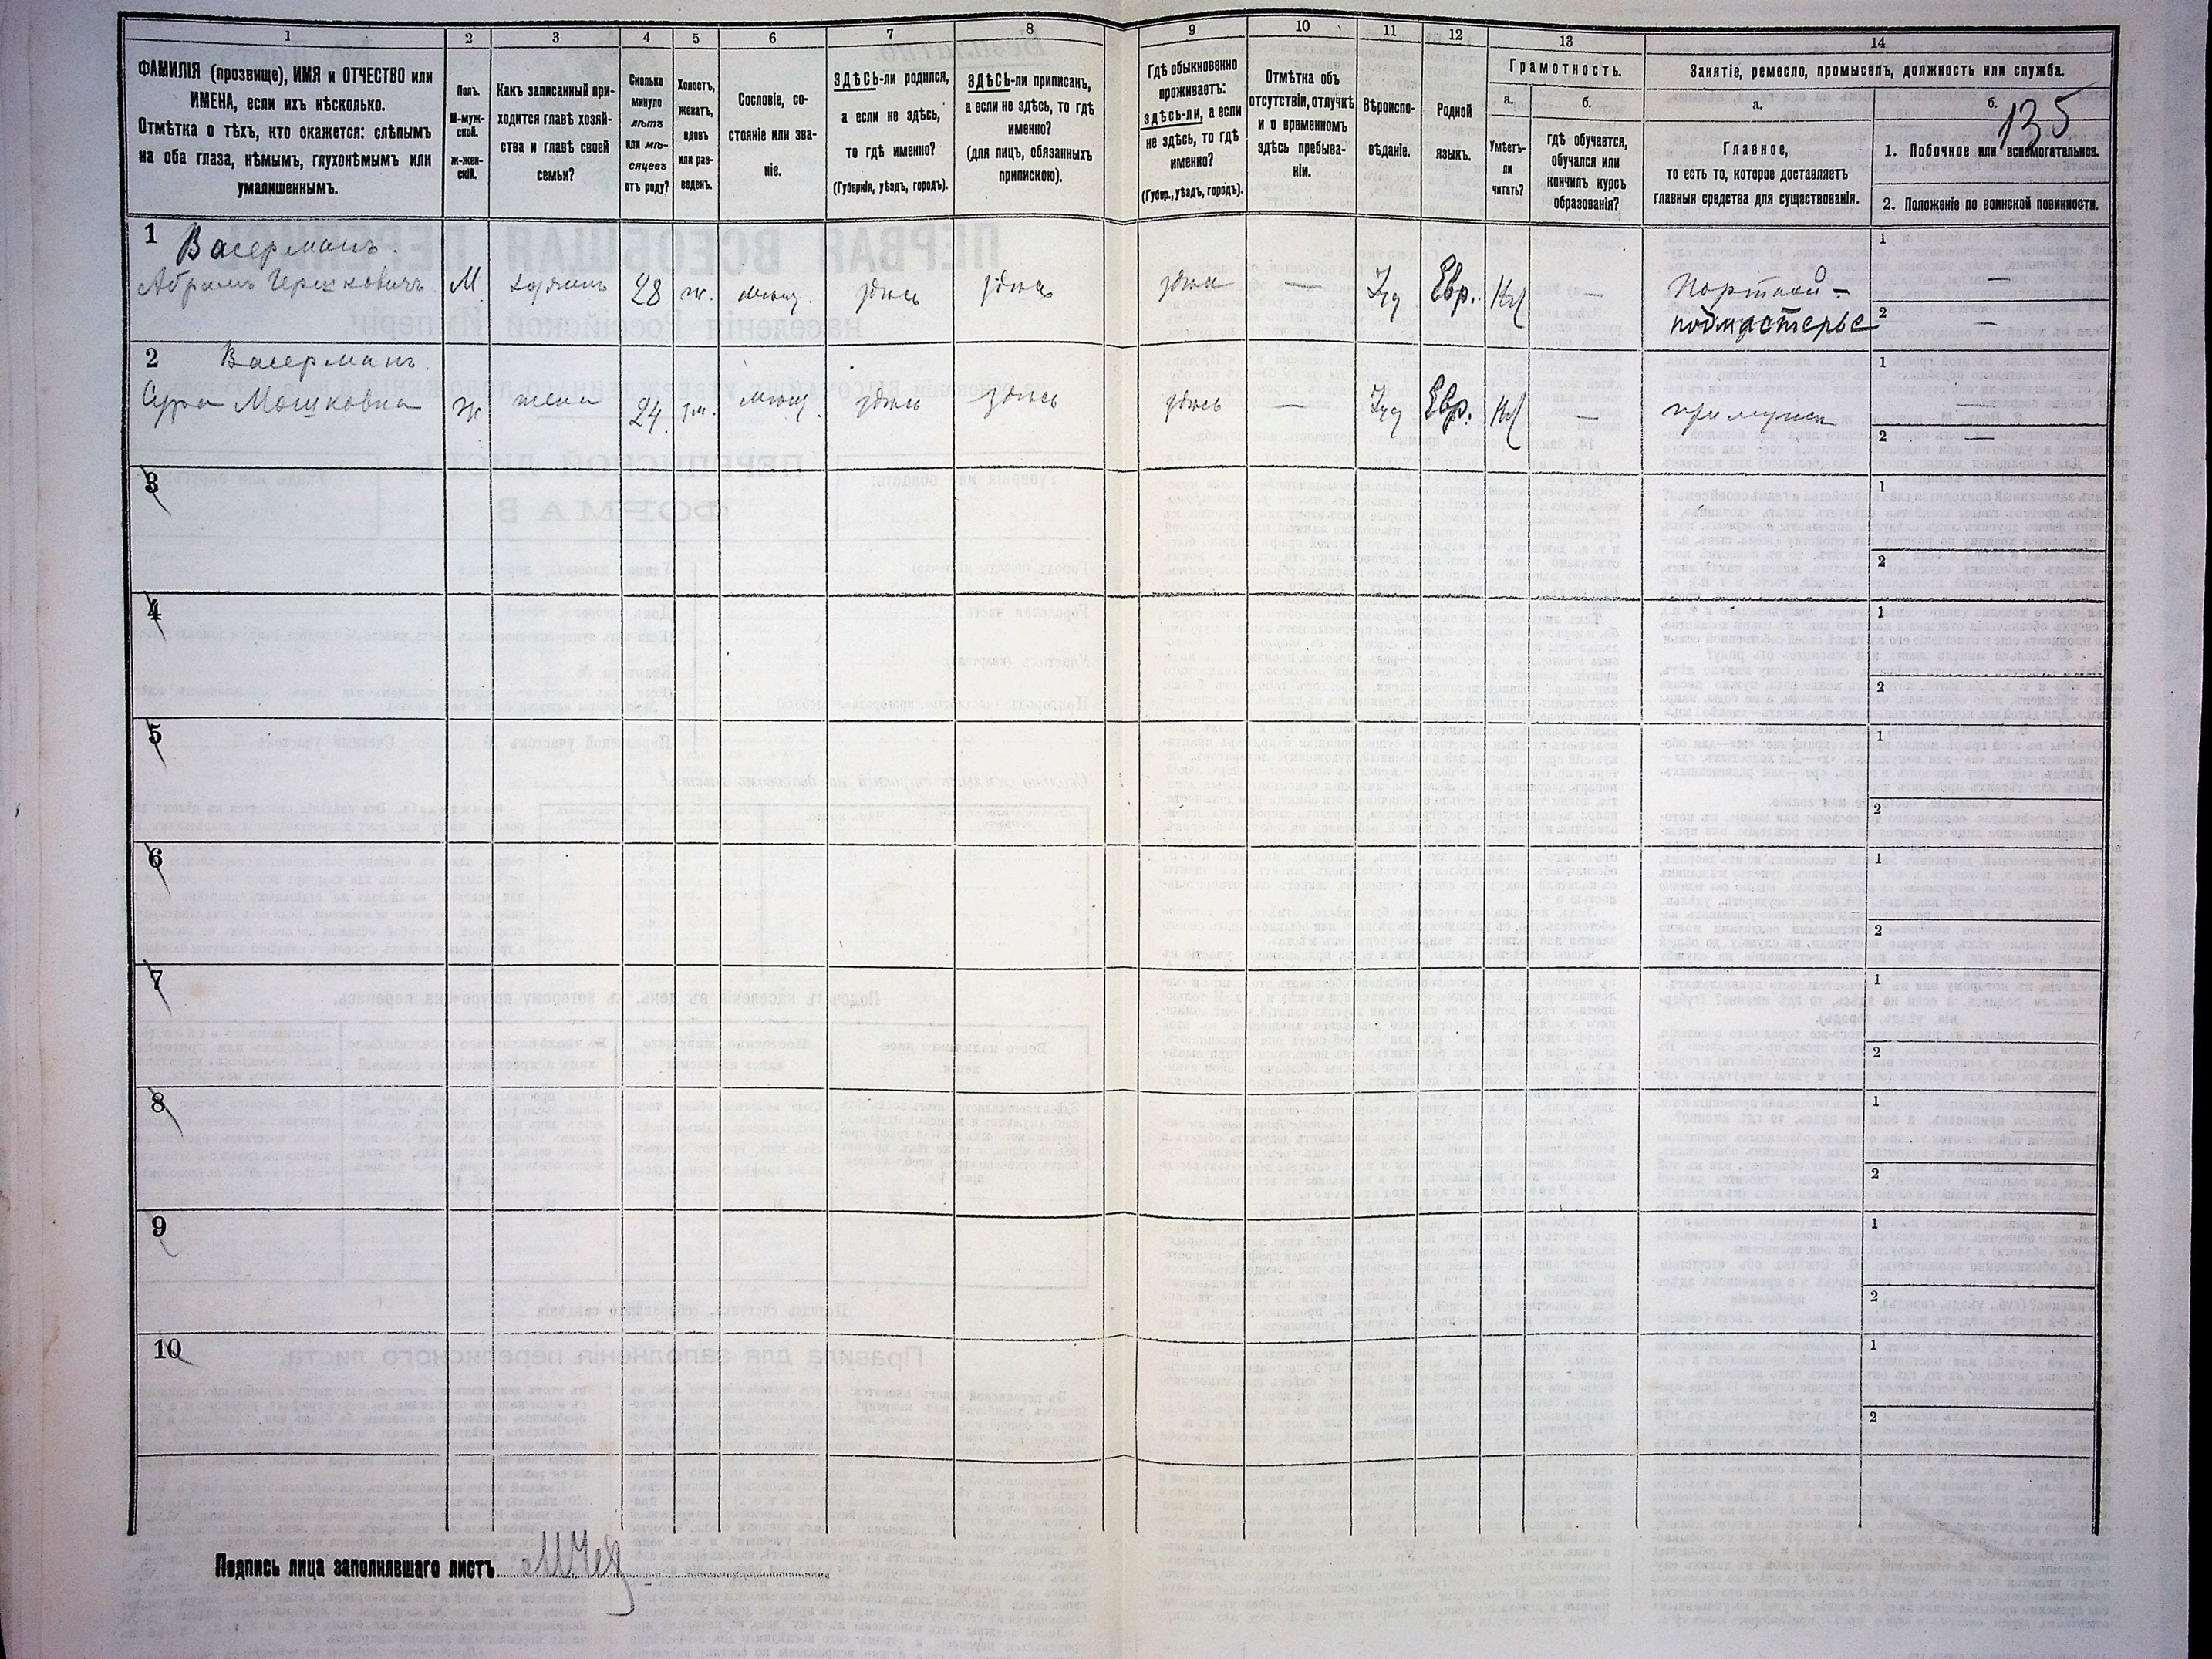 1
2
3
4
5
6
7
8
9
10
11
12
13
14
ФАМИЛІЯ (прозвище), ИМЯ и ОТЧЕСТВО или
ИМЕНА, если ихъ нѣсколько.
Отмѣтка о тѣхъ, кто окажется: слѣпымъ
на оба глаза, нѣмымъ, глухонѣмымъ или
умалишеннымъ.
Полъ.
М-муж-
ской.
ж-жен-
скій.
Какъ записанный при-
ходится главѣ хозяй-
ства и главѣ своей
семьи?
Сколько
минуло
лѣтъ
или мѣ-
сяцевъ
отъ роду?
Холостъ,
женатъ,
вдовъ
или раз-
веденъ.
Сословіе, со-
стояніе или зва-
ніе.
ЗДѢСЬ-ли родился,
а если не здѣсь,
то гдѣ именно?
(Губернія, уѣздъ, городъ).
ЗДѢСЬ-ли приписанъ,
а если не здѣсь, то гдѣ
именно?
(для лицъ, обязанныхъ
припискою).
Гдѣ обыкновенно
проживаетъ:
здѣсь-ли, а если
не здѣсь, то гдѣ
именно?
(Губер., уѣздъ, городъ).
Отмѣтка объ
отсутствіи, отлучкѣ
и о временномъ
здѣсь пребыва-
ніи.
Вѣроиспо-
вѣданіе.
Родной
языкъ.
Грамотность.
а.
Умѣетъ-
ли
читать?
б.
гдѣ обучается,
обучался или
кончилъ курсъ
образованія?
Занятіе, ремесло, промыселъ, должность или служба.
а.
Главное,
то есть то, которое доставляетъ
главныя средства для существованія.
б.
135
1. Побочное или вспомогательное.
2. Положеніе по воинской повинности.
1
Васерманъ.
Абрамъ Гершковичъ М. хозяинъ 28 ж. мѣщ. здѣсь здѣсь здѣсь — Іуд Евр. — Портной –
подмастерье
1 —
2 —
2
Васерманъ.
Сура Мошковна ж жена 24. зм. мѣщ. здѣсь здѣсь здѣсь — Іуд Евр. — при мужѣ
1 —
2 —
3
1
2
4
1
2
5
1
2
6
1
2
7
1
2
8
1
2
9
1
2
10
1
2
Подпись лица заполнявшаго листъ